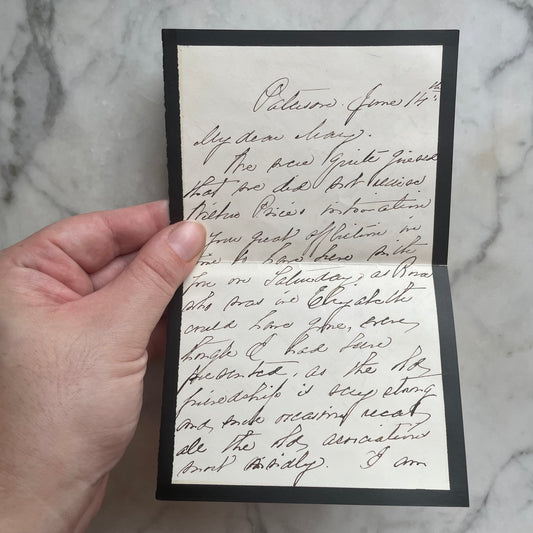 Paterson. June 14th
My dear Mary.
We were quite grieved
that we did not receive
Price's intimation
of your great affliction in
time to have been with
you on Saturday, as Rosa
who was in Elizabeth
could have gone, even
though I had been
prevented, as the old
friendship is very strong
and such occasions recall
all the old associations
most vividly. I am